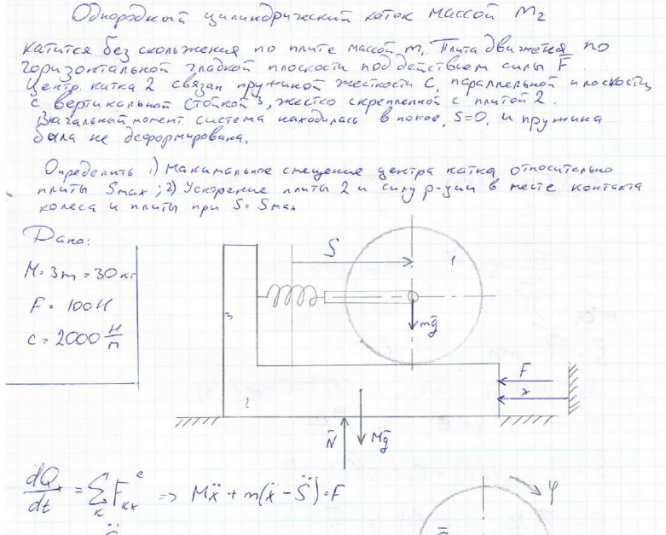 Однородный цилиндрический каток массой m₂
катится без скольжения по плите массой m₁. Плита движется по
горизонтальной гладкой плоскости под действием силы F̄.
Центр. катка 2 связан пружиной жесткости C, параллельной плоскости
с вертикальной стойкой 3, жестко скрепленной с плитой 2.
В начальный момент система находилась в покое, S=0, и пружина
была не деформирована.
Определить 1) Максимальное смещение центра катка относительно
плиты Smax; 2) Ускорение плиты 2 и силу р-ции в месте контакта
колеса и плиты при S=Smax
Дано:
M=3m=30кг
F=100Н
c=2000 Н/м
S
1
3
mḡ
F̄
x
2
N̄
Mḡ
dQₓ/dt = ΣFₖₓᵉ => Mẍ+m(ẍ-S̈)=F
φ